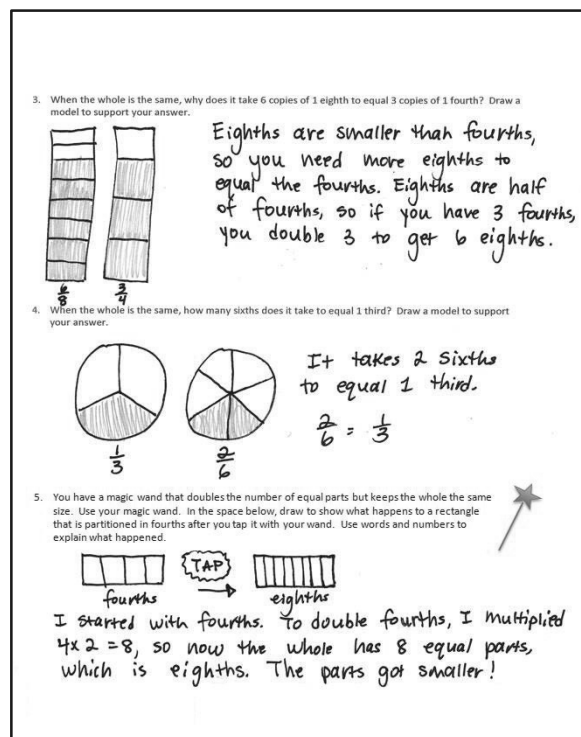 3. When the whole is the same, why does it take 6 copies of 1 eighth to equal 3 copies of 1 fourth? Draw a
model to support your answer.
Eighths are smaller than fourths,
so you need more eighths to
equal the fourths. Eighths are half
of fourths, so if you have 3 fourths,
you double 3 to get 6 eighths.
6/8 3/4
4. When the whole is the same, how many sixths does it take to equal 1 third? Draw a model to support
your answer.
It takes 2 sixths
to equal 1 third.
2/6 = 1/3
1/3 2/6
5. You have a magic wand that doubles the number of equal parts but keeps the whole the same
size. Use your magic wand. In the space below, draw to show what happens to a rectangle
that is partitioned in fourths after you tap it with your wand. Use words and numbers to
explain what happened.
TAP
fourths eighths
I started with fourths. To double fourths, I multiplied
4x2=8, so now the whole has 8 equal parts,
which is eighths. The parts got smaller!